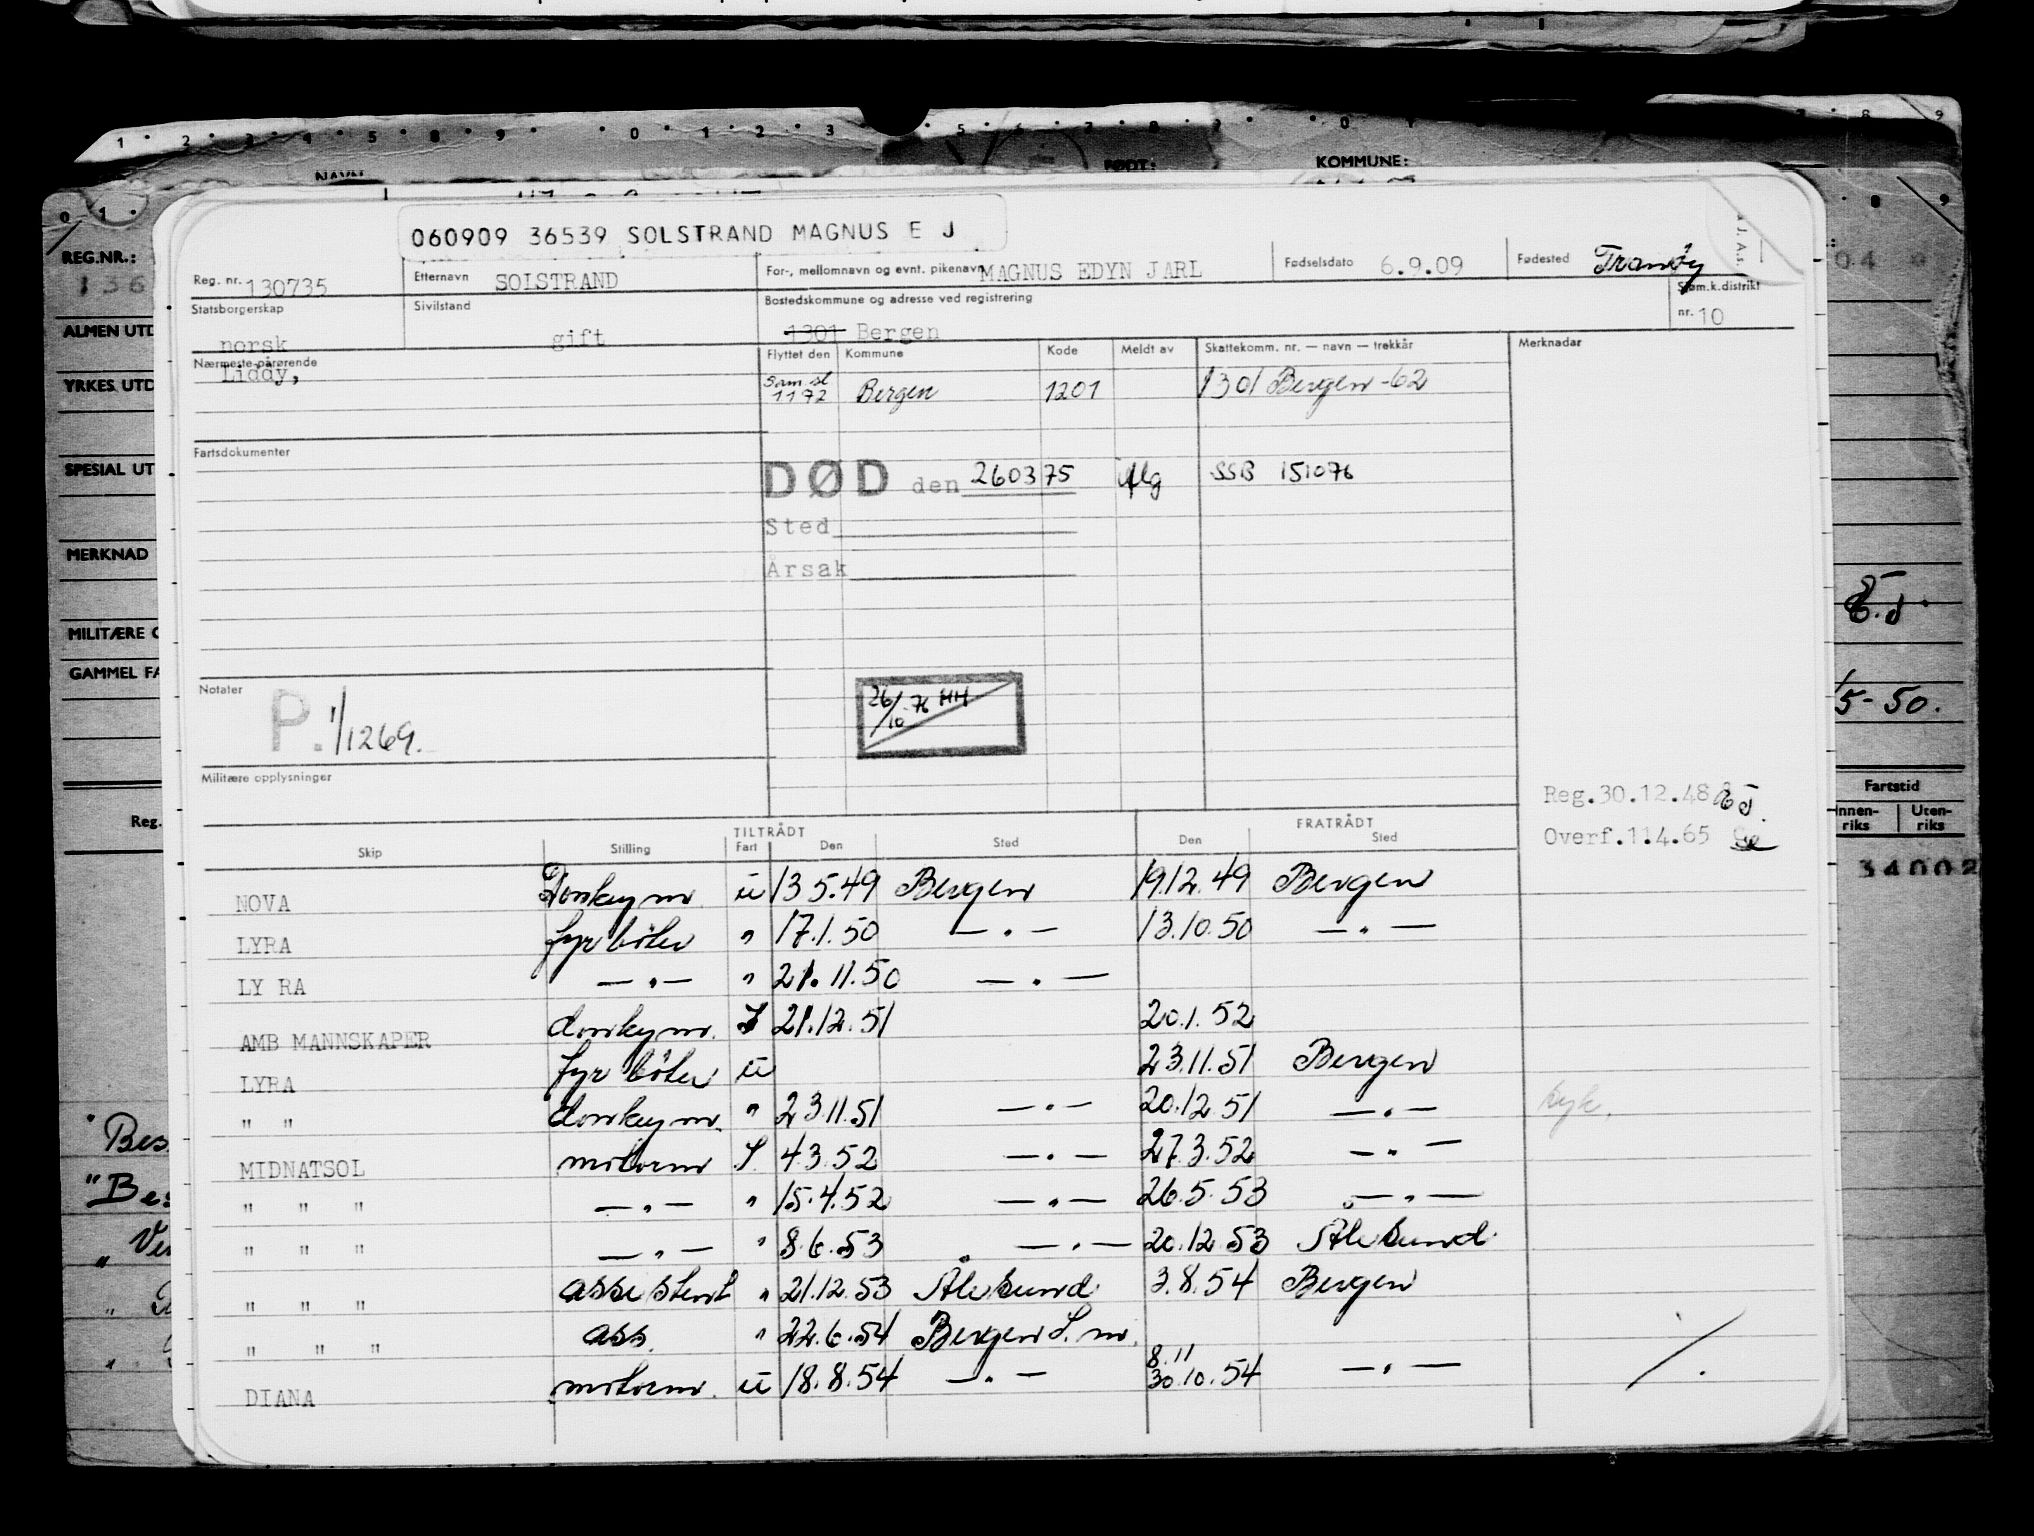 1 2 3 4 5 8 9 0 1 2 3 5 6 7 8 9 0
NAVN FØDT: KOMMUNE:
060909 36539 SOLSTRAND MAGNUS E J
Reg. nr. 130735 Etternavn SOLSTRAND For-, mellomnavn og evnt. pikenavn MAGNUS EDYN JARL Fødselsdato 6.9.09 Fødested Tranöy
Statsborgerskap norsk Sivilstand gift Bostedskommune og adresse ved registrering 1301 Bergen Sjøm.k.distrikt nr. 10
Nærmeste pårørende Liddy, Flyttet den Kommune Kode Meldt av Skattekomm. nr. — navn — trekkår Merknadar
Sam. sl 1172 Bergen 1201 1301 Bergen -62
Fartsdokumenter
DØD den 260375 Mlg SSB 151076
Sted
Årsak
Notater P. 1/1269. 26/10-76 HH
Militære opplysninger
Reg.30.12.48
Overf.11.4.65
TILTRÅDT FRATRÅDT
Skip Stilling Fart Den Sted Den Sted
NOVA Donkeym. u 13.5.49 Bergen 19.12.49 Bergen
LYRA fyrböter " 17.1.50 — " — 13.10.50 — " —
LY RA — " — " 21.11.50 — " —
AMB MANNSKAPER donkeym. I 21.12.51 20.1.52
LYRA fyrböter u 23.11.51 Bergen
" " donkeym. " 23.11.51 — " — 20.12.51 — " — syk.
MIDNATSOL motorm I 4.3.52 — " — 27.3.52 — " —
" " " — " — " 15.4.52 — " — 26.5.53 — " —
" " " — " — " 8.6.53 — " — 20.12.53 Ålesund
" " " assistent " 21.12.53 Ålesund 3.8.54 Bergen
" " " ass. " 22.6.54 Bergen S.m.
DIANA motorm. u 18.8.54 — " — 8.11 30.10.54 — " —
REG.NR.:
136
ALMEN UTD
YRKES UTD
SPECIAL UT
MERKNAD
MILITÆRE
GAMMEL FA
Reg.
15-50.
Fartstid
Innen-riks Uten-riks
34002